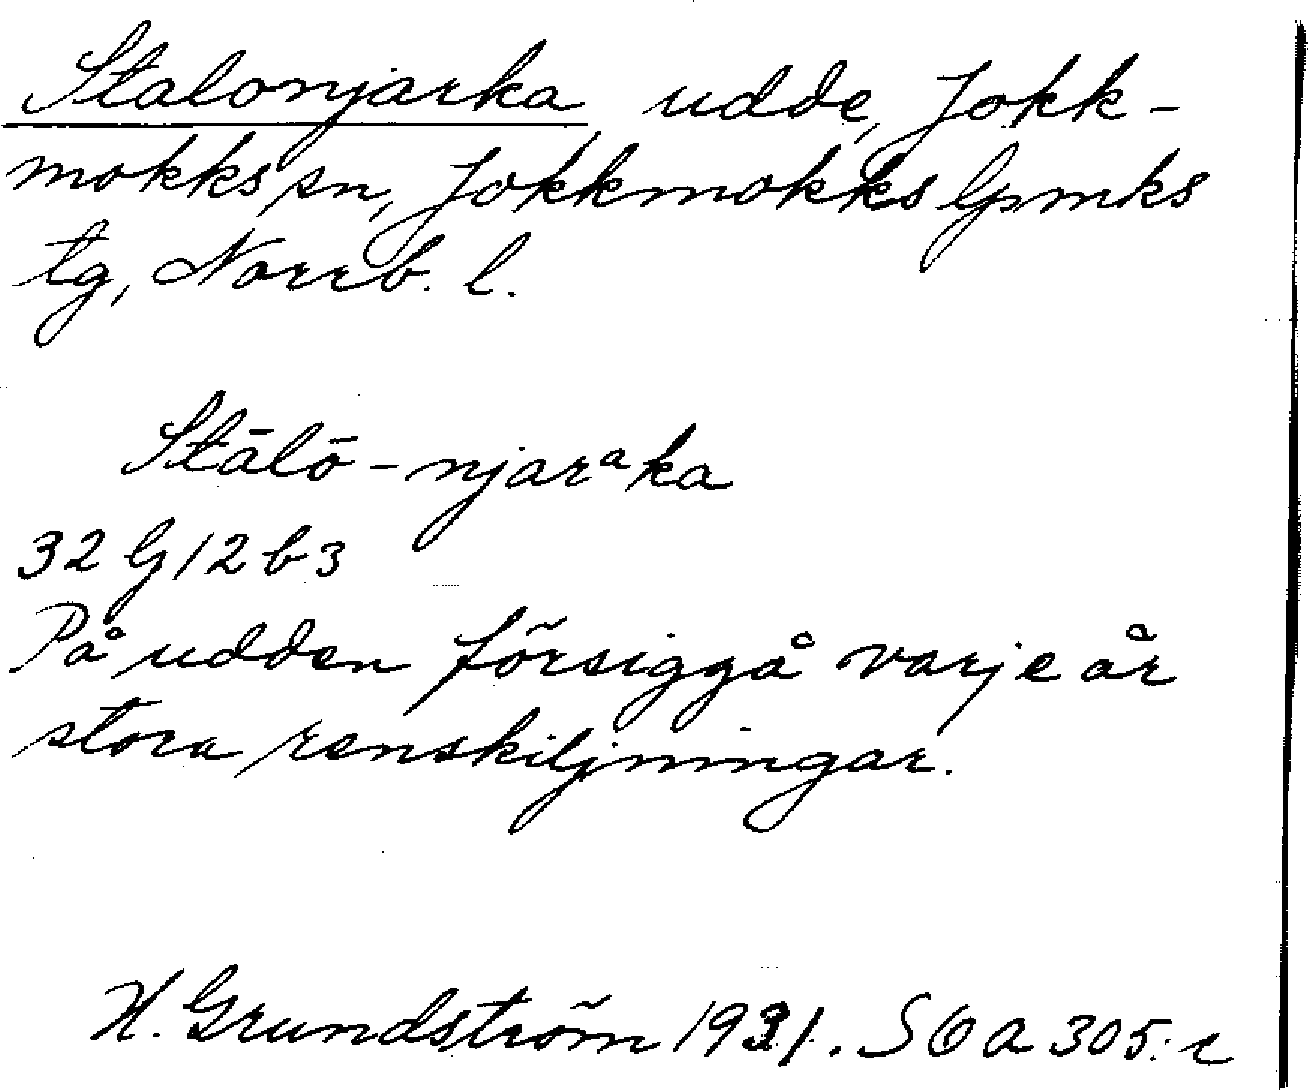 Stalonjarka, udde, Jokk-
mokks sn, Jokkmokks lpmks
tg, Norrb. l.
Stālō-njarᵃka
32 G/2b3
På udden försiggå varje år
stora renskiljningar.
H. Grundström 1931. SOA 305:c